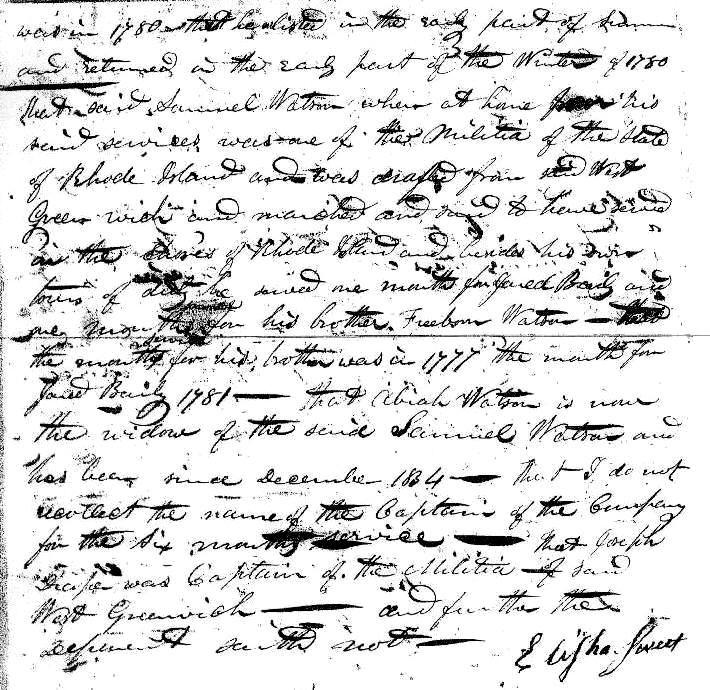 was in 1780 that he enlisted in the early part of
and returned in the early part of the Winter of 1780
that said Samuel Watson when at home from his
said services was one of the Militia of the State
of Rhode Island and was drafted from said West
Greenwich and marched and said to have served
on the shores of Rhode Island and besides his own
tours of duty he served one month for Jared Baily and
one month for his brother Freeborn Watson — that
the months service for his brother was in 1777 the month for
Jared Baily 1781 — that Abiah Watson is now
the widow of the said Samuel Watson and
has been since December 1834 — that I do not
recollect the name of the Captain of the Company
for the six months service — that Joseph
was Captain of the Militia of said
West Greenwich — and further the
deponent saith not —
Elisha Sweet